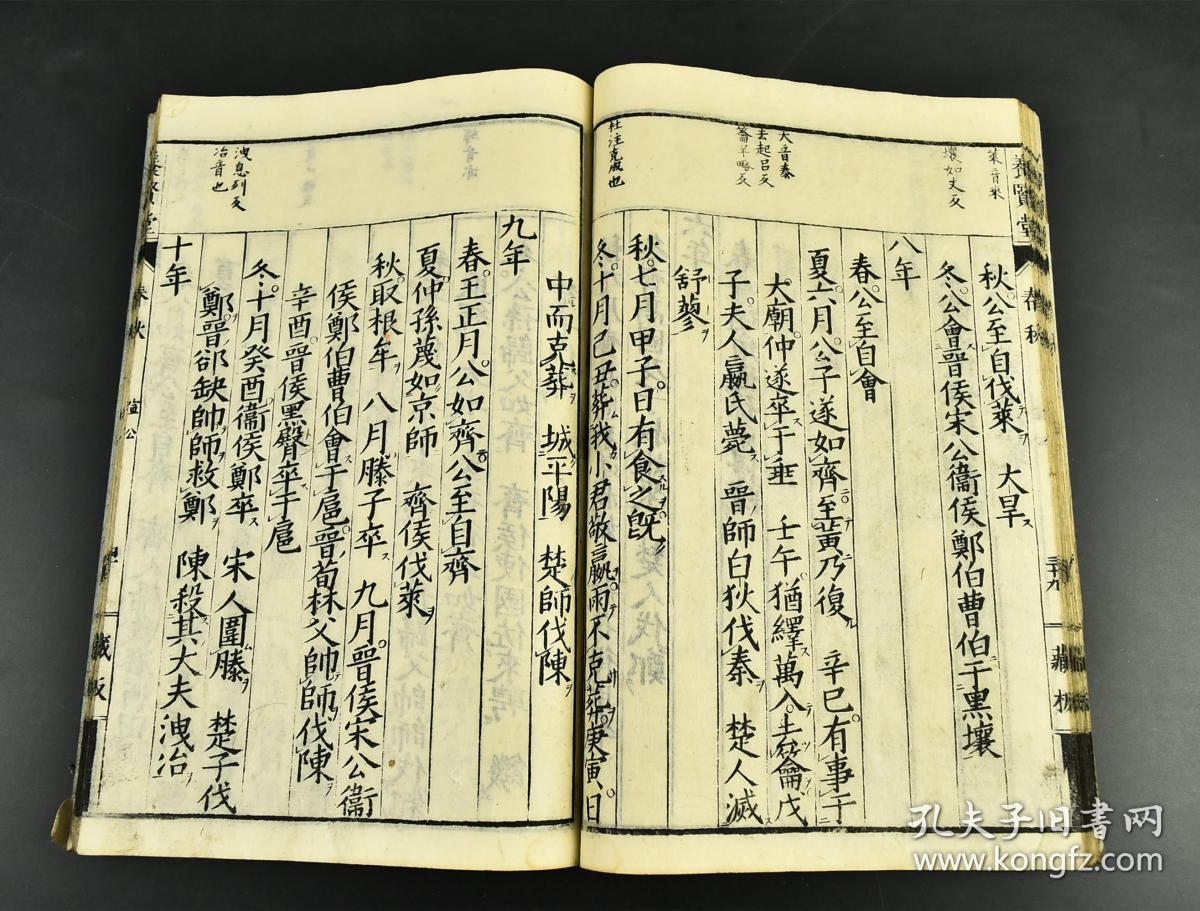 萊音來
壤如丈反
大音泰
去起呂反
籥羊略反
杜注克成也
秋公至自伐萊ヲ　大旱ス
冬公會晉侯宋公衞侯鄭伯曹伯于黑壤
八年
春公至自會
夏六月公子遂如齊至黃乃復　辛巳有事于
大廟仲遂卒于垂　壬午猶繹萬入去籥戊
子夫人嬴氏薨　晉師白狄伐秦　楚人滅
舒蓼ヲ
秋七月甲子日有食之既
冬十月己丑葬我小君敬嬴雨不克葬庚寅日
養賢堂
春秋
三十九
藏板
洩息列反
冶音也
中而克葬　城平陽　楚師伐陳
九年
春王正月公如齊公至自齊
夏仲孫蔑如京師　齊侯伐萊
秋取根牟　八月滕子卒　九月晉侯宋公衞
侯鄭伯曹伯會于扈晉荀林父帥師伐陳
辛酉晉侯黑臀卒于扈
冬十月癸酉衞侯鄭卒　宋人圍滕　楚子伐
鄭晉郤缺帥師救鄭
十年　陳殺其大夫洩冶
養賢堂
春秋
宣公
藏板
孔夫子旧书网
www.kongfz.com